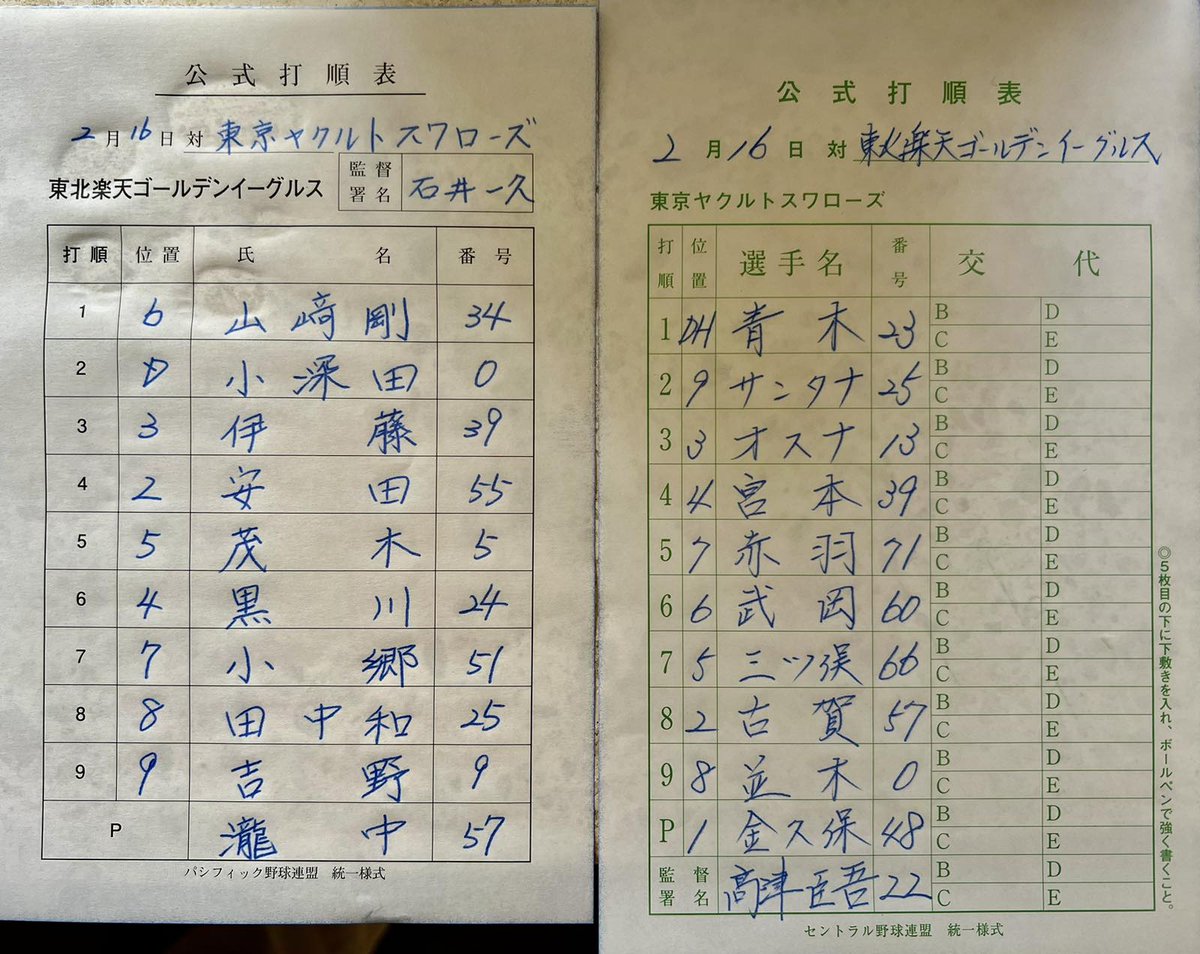 公式打順表
2月16日対 東京ヤクルトスワローズ
東北楽天ゴールデンイーグルス 監督署名 石井一久
打順 位置 氏名 番号
1 6 山﨑剛 34
2 D 小深田 0
3 3 伊藤 39
4 2 安田 55
5 5 茂木 5
6 4 黒川 24
7 7 小郷 51
8 8 田中和 25
9 9 吉野 9
P 瀧中 57
パシフィック野球連盟 統一様式
公式打順表
2月16日 対 東北楽天ゴールデンイーグルス
東京ヤクルトスワローズ
打順 位置 選手名 番号 交代
1 DH 青木 23 B D
C E
2 9 サンタナ 25 B D
C E
3 3 オスナ 13 B D
C E
4 4 宮本 39 B D
C E
5 7 赤羽 71 B D
C E
6 6 武岡 60 B D
C E
7 5 三ツ俣 66 B D
C E
8 2 古賀 57 B D
C E
9 8 並木 0 B D
C E
P 1 金久保 48 B D
C E
監督署名 高津臣吾 22 B D
C E
セントラル野球連盟 統一様式
◎5枚目の下に下敷きを入れ、ボールペンで強く書くこと。